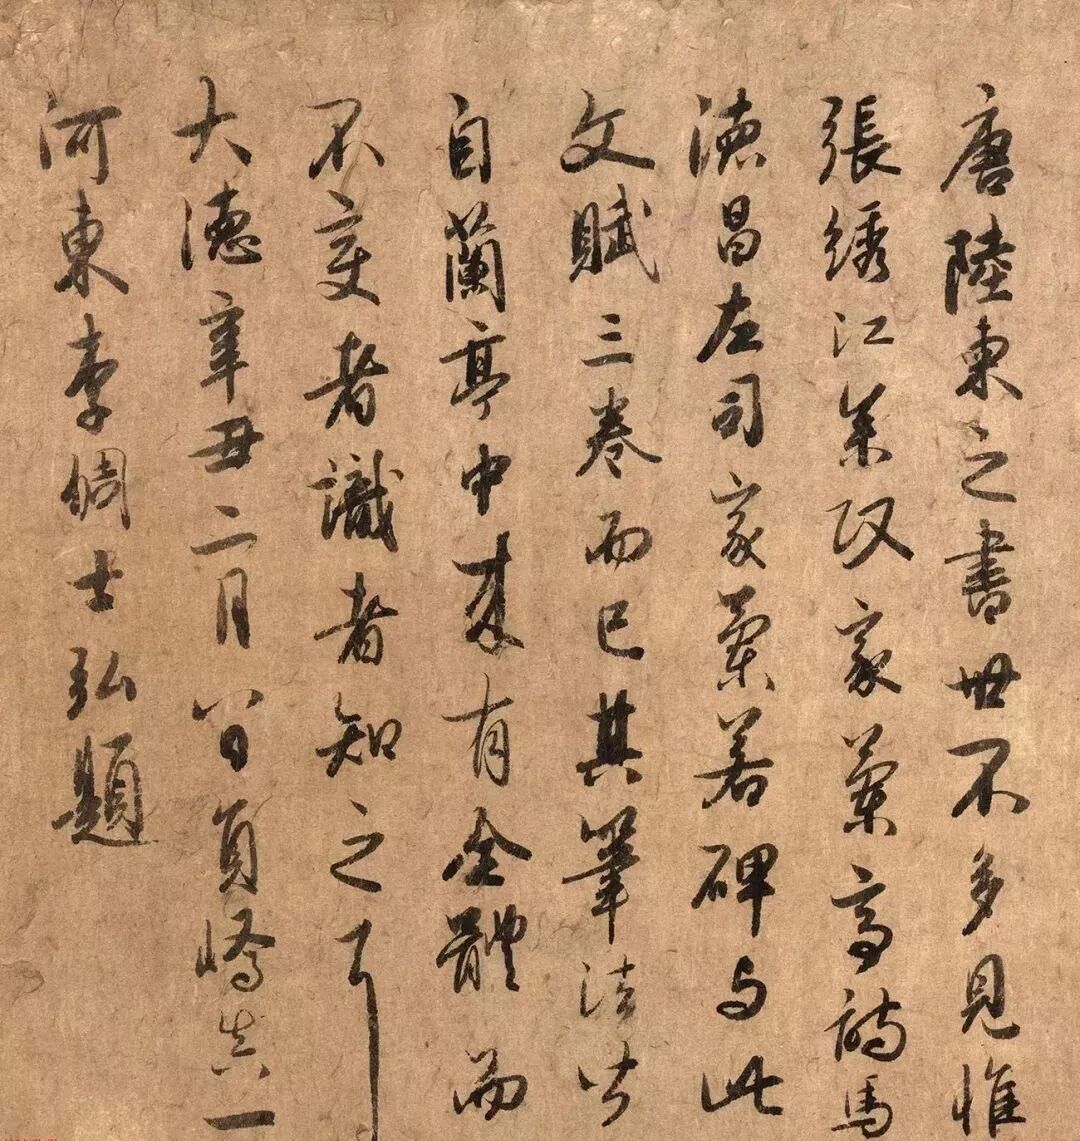 唐陸柬之書世不多見惟
張綉江參政家蘭亭詩馬
德昌左司家蘭若碑与此
文賦三卷而已其筆法皆
自蘭亭中来有全體而
不变者識者知之耳
大德辛丑二月八日員嶠真一
河東李倜士弘題